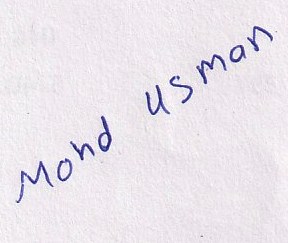 Mohd Usman